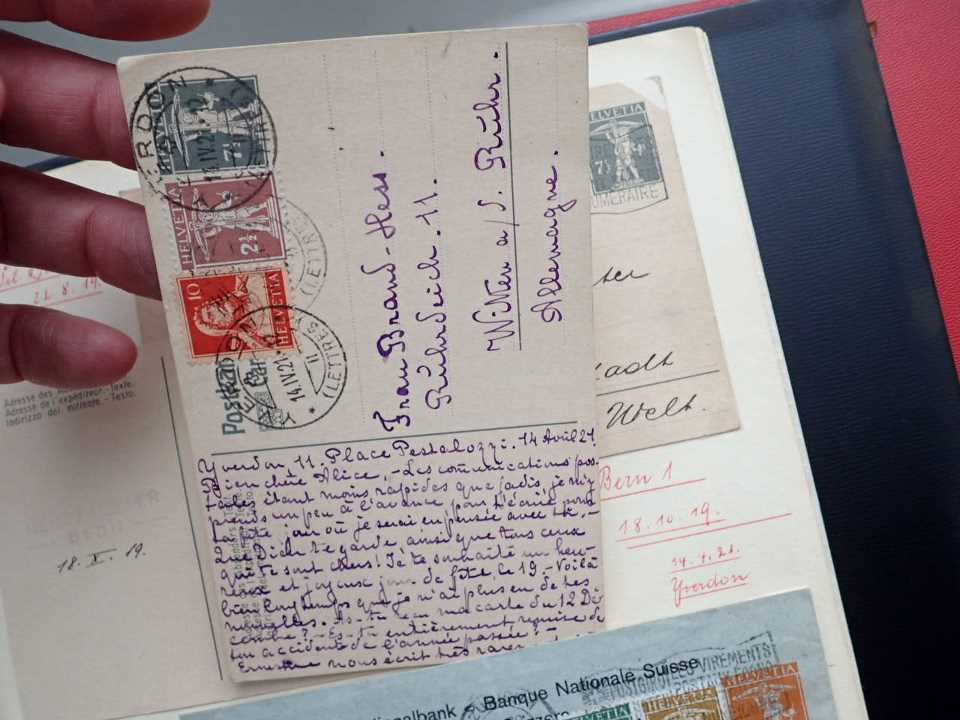 YVERDON
14.IV.21
HELVETIA
7½
HELVETIA
2½
10
HELVETIA
14.IV.21
11
(LETTRES)
Postkarte
Frau Brand-Hess.
Ruhrdeich. 11.
Witten a/d. Ruhr.
Allemagne.
Yverdon, 11. Place Pestalozzi. 14 Avril 21.
Bien chère Alice, - Les communications pos-
tales étant moins rapides que jadis, je m'y
prends un peu à l'avance pour t'écrire pour
ta fête, jour où je serai en pensée avec toi. -
Que Dieu te garde ainsi que tous ceux
qui te sont chers! Je te souhaite un heu-
reux et joyeux jour de fête, le 19. - Voilà
bien longtemps que je n'ai plus eu de tes
nouvelles. As-tu reçu ma carte du 12 Dé
cembre? - Es-tu entièrement remise de
ton accident de l'année passée? -
nous écrit très rarement
HELVETIA
7½
Welt.
Bern 1
18.10.19.
14.4.21.
Yverdon
22.8.19.
Adresse des
Adresse de l'expéditeur. - Texte.
Indirizzo del mittente. - Testo.
18.X.19.
nalbank - Banque Nationale Suisse
VIREMENTS
HELVETIA
HELVETIA
HELVETIA